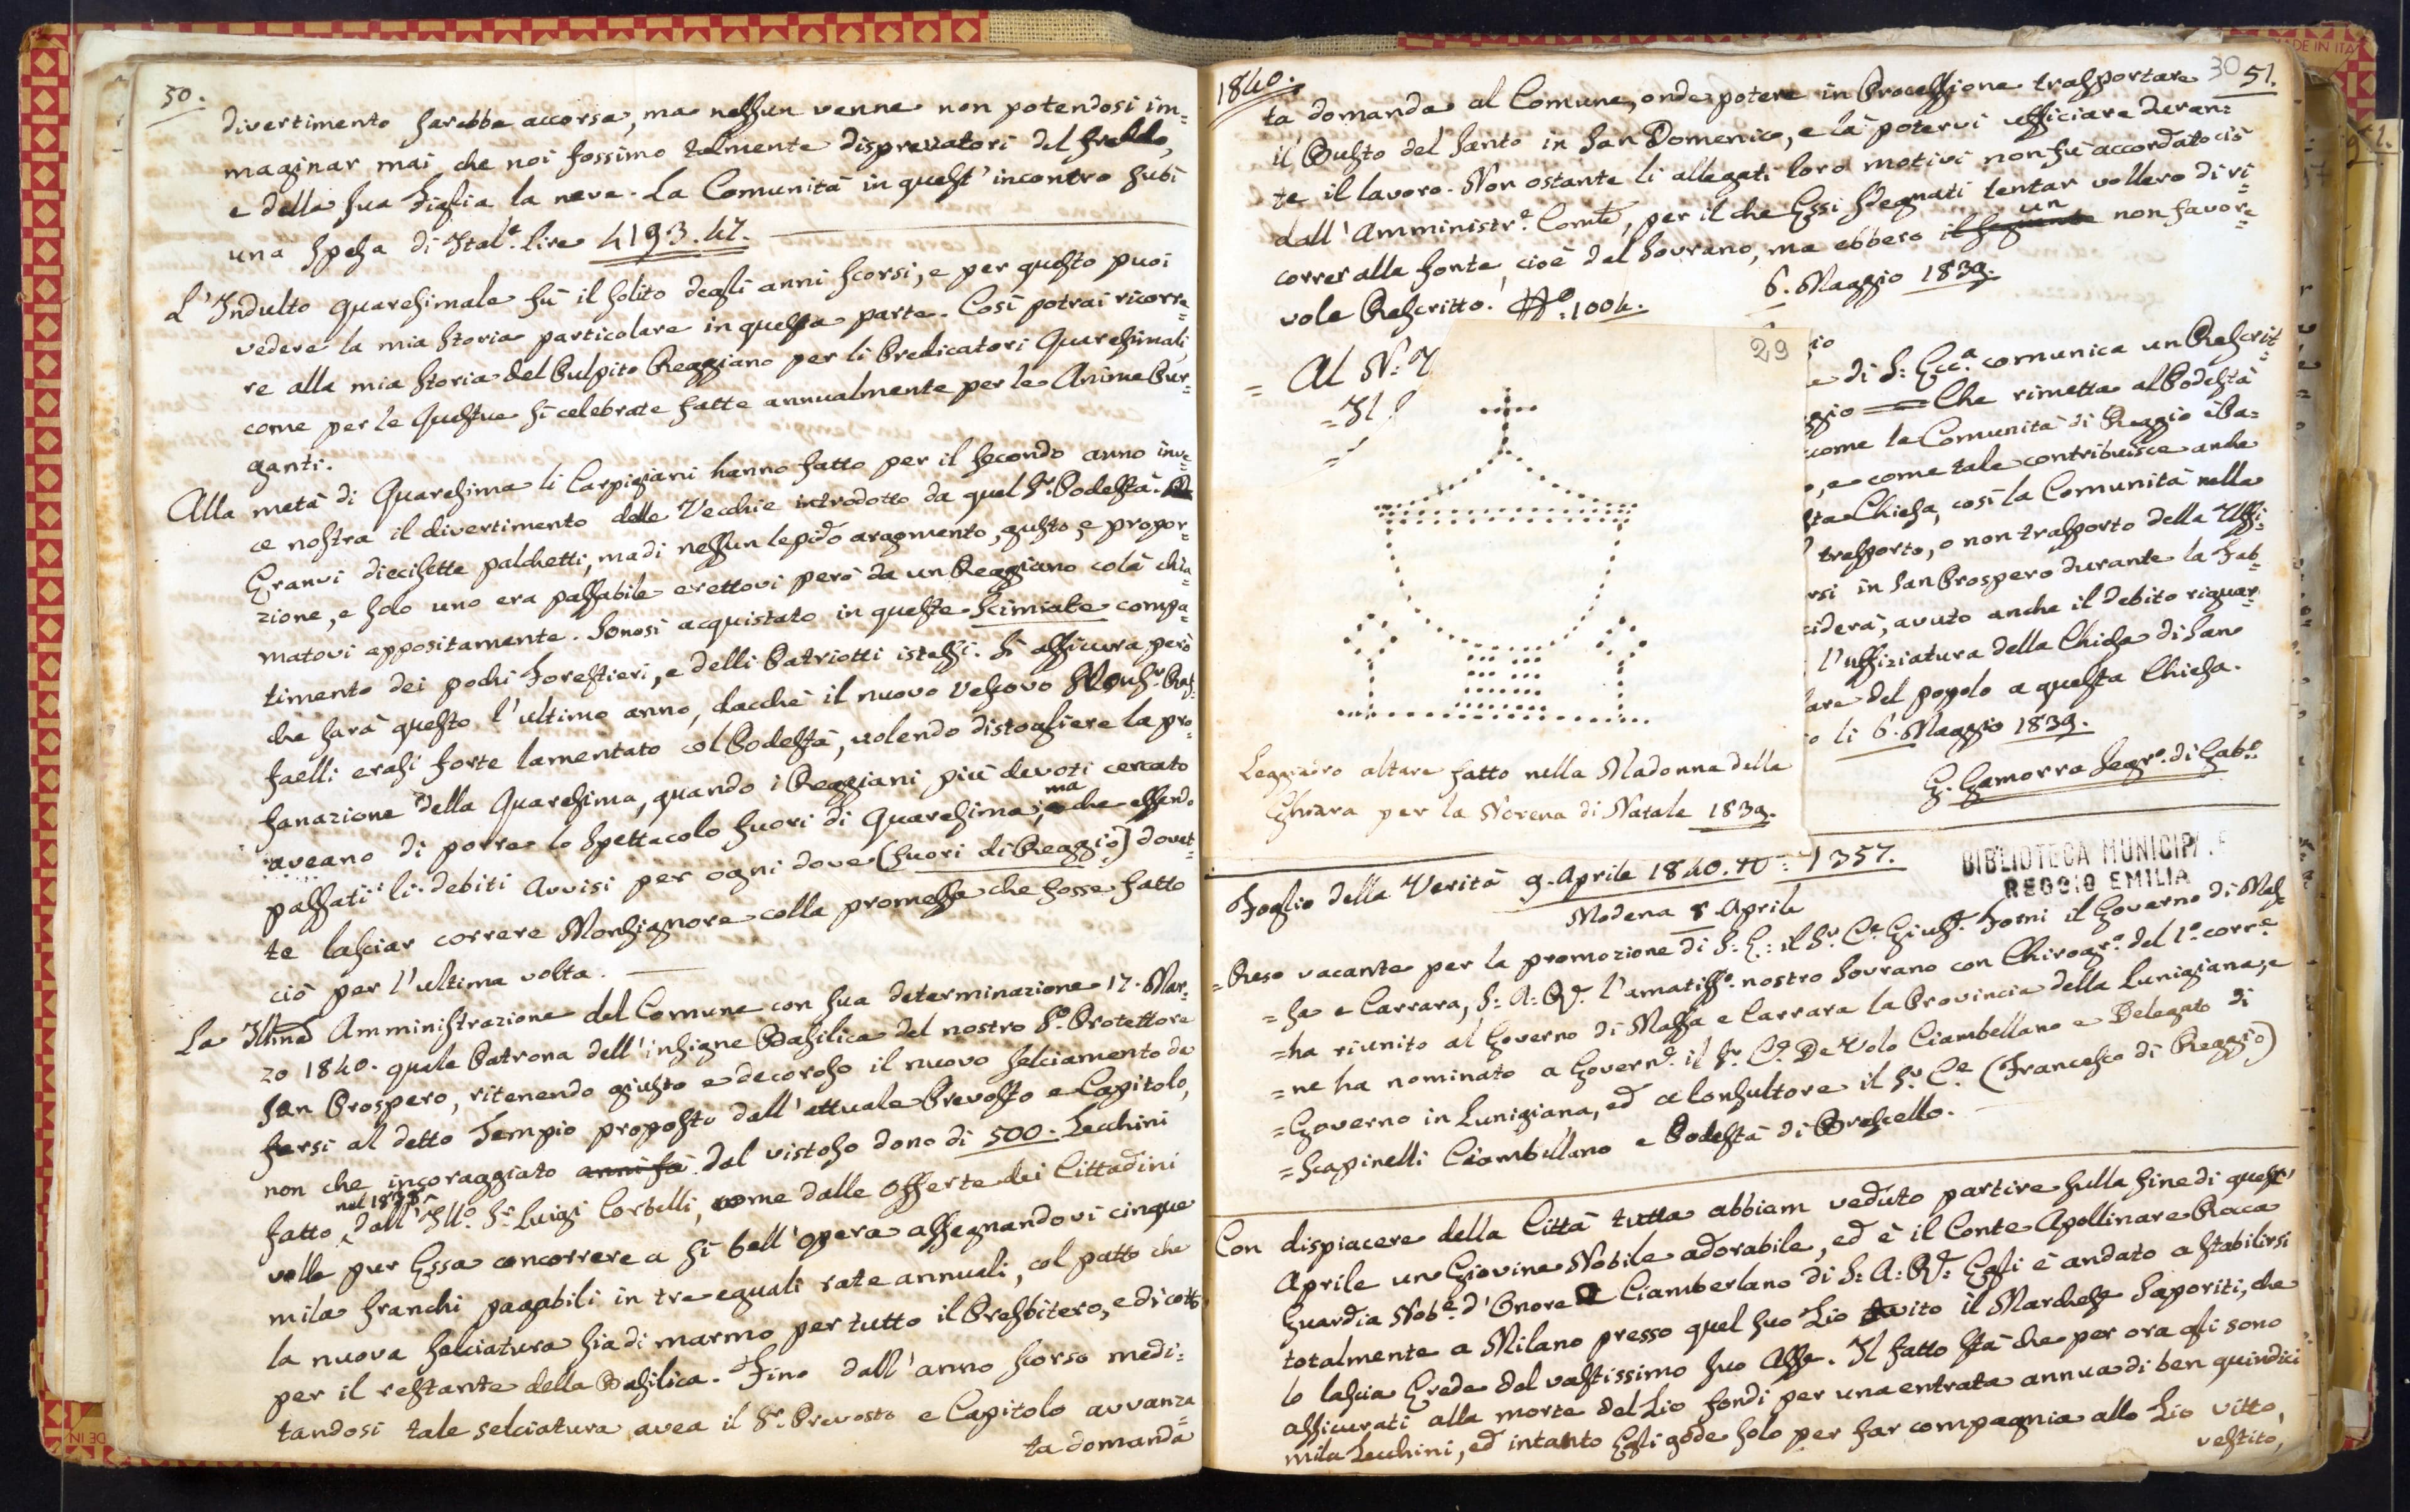 50.
divertimento sarebbe accorsa, ma nessun venne non potendosi im=
maginar mai che noi fossimo talmente disprezzatori del freddo,
e della sua Figlia la neve. La Comunità in quest'incontro subì
una spesa di Ital.e lire 4193.47.
L'Indulto quaresimale fù il solito degli anni scorsi, e per questo puoi
vedere la mia Storia particolare in questa parte. Così potrai ricorre=
re alla mia Storia del Pulpito Reggiano per li Predicatori Quaresimali,
come per le Questue sì celebrate fatte annualmente per le Anime Pur=
ganti.
Alla metà di Quaresima li Carpigiani hanno fatto per il secondo anno inve=
ce nostra il divertimento delle Vecchie introdotto da quel Sr. Podestà.
Eranvi diecisette palchetti, ma di nessun lepido aragmento, gusto, e propor=
zione, e solo uno era passabile erettovi però da un Reggiano colà chia=
matovi appositamente. Sonosi acquistato in queste Scimiate compa=
timento dei pochi Forestieri, e delli Patriotti istessi. Si assicura però
che sarà questo l'ultimo anno, dacchè il nuovo Vescovo Monsr. Raf=
faelli erasi forte lamentato col Podestà, volendo distogliere la pro=
fanazione della Quaresima, quando i Reggiani più devoti cercato
aveano di porre lo Spettacolo fuori di Quaresima; ma che essendo
passati li debiti Avvisi per ogni dove (fuori di Reggio) dovet=
te lasciar correre Monsignore colla promessa che fosse fatto
ciò per l'ultima volta.
La Illma Amministrazione del Comune con sua determinazione 17. Mar=
zo 1840. quale Patrona dell'insigne Basilica del nostro Sto. Protettore
San Prospero, ritenendo giusto e decoroso il nuovo selciamento da
farsi al detto Tempio proposto dall'attuale Prevosto e Capitolo,
non che incoraggiato anni fa dal vistoso dono di 500. Zecchini
fatto nel 1838 dall'Illo. Sr. Luigi Corbelli, come dalle Offerte dei Cittadini
volle pur Essa concorrere a sì bell'Opera assegnandovi cinque
mila franchi pagabili in tre eguali rate annuali, col patto che
la nuova selciatura sia di marmo per tutto il Presbitero, e di cotto
per il restante della Basilica. Fino dall'anno scorso medi=
tandosi tale selciatura avea il Sr. Prevosto e Capitolo avvanza=
ta domanda
1840.
30 51.
ta domanda al Comune, onde potere in Processione trasportare
il Busto del Santo in San Domenico, e là potervi ufficiare duran=
te il lavoro. Non ostante li allegati loro motivi non fù accordato ciò
dall'Amministr.e Comle, per il che Essi sdegnati tentar vollero di ri=
correr alla fonte, cioè dal Sovrano, ma ebbero il seguente un non favore=
vole Rescritto. No. 1004. 6. Maggio 1839.
29
= Al N:
= Il
e di S: Ecc.a comunica un Rescrit=
ggio = Che rimetta al Podestà
come la Comunità di Reggio è Pa=
, e come tale contribuisce anche
sta Chiesa, così la Comunità nella
trasporto, o non trasporto della Uffi=
rsi in San Prospero durante la Fab=
ciderà, avuto anche il debito riguar=
l'uffiziatura della Chiesa di San
lare del popolo a questa Chiesa.
o li 6. Maggio 1839.
G. Gamorra Segr.o di Gab.o
Leggiadro altare fatto nella Madonna della
Ghiara per la Novena di Natale 1839.
BIBLIOTECA MUNICIP
REGGIO EMILIA
Foglio della Verità 9. Aprile 1840. No: 1357.
Modena 8 Aprile
= Reso vacante per la promozione di S: E: il Sr. Ce. Gius.e Forni il Governo di Mas=
= sa e Carrara, S: A: R. l'amatisso. nostro Sovrano con Chirogr.o del 1o. corr.e
= ha riunito al Governo di Massa e Carrara la Provincia della Lunigiana, e
= ne ha nominato a Govern.e il Sr. Ce. De Volo Ciambellano e Delegato di
= Governo in Lunigiana, ed a Consultore il Sr. Ce. (Francesco di Reggio)
= Scapinelli Ciambellano e Podestà di Brescello.
Con dispiacere della Città tutta abbiam veduto partire sulla fine di quest'
Aprile un Giovine Nobile adorabile, ed è il Conte Apollinare Rocca
Guardia Nob.e d'Onore e Ciamberlano di S: A: R: Egli è andato a stabilirsi
totalmente a Milano presso quel suo Zio avito il Marchese Saporiti, che
lo lascia Erede del vastissimo suo Asse. Il fatto stà che per ora gli sono
assicurati alla morte del Zio fondi per una entrata annua di ben quindici
mila Zecchini, ed intanto Egli gode solo per far compagnia allo Zio vitto,
vestito,